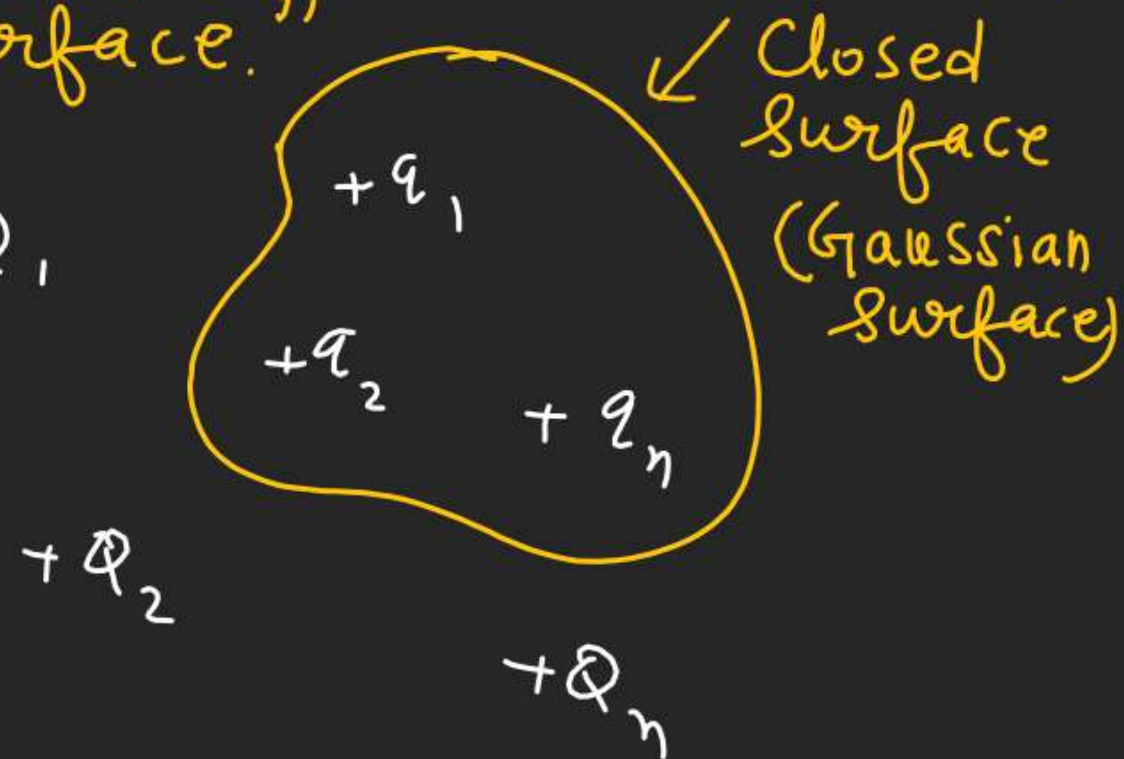 rface."
Closed
surface
(Gaussian
surface)
+q₁
1
+q₂
+qₙ
+Q₂
+Qₙ